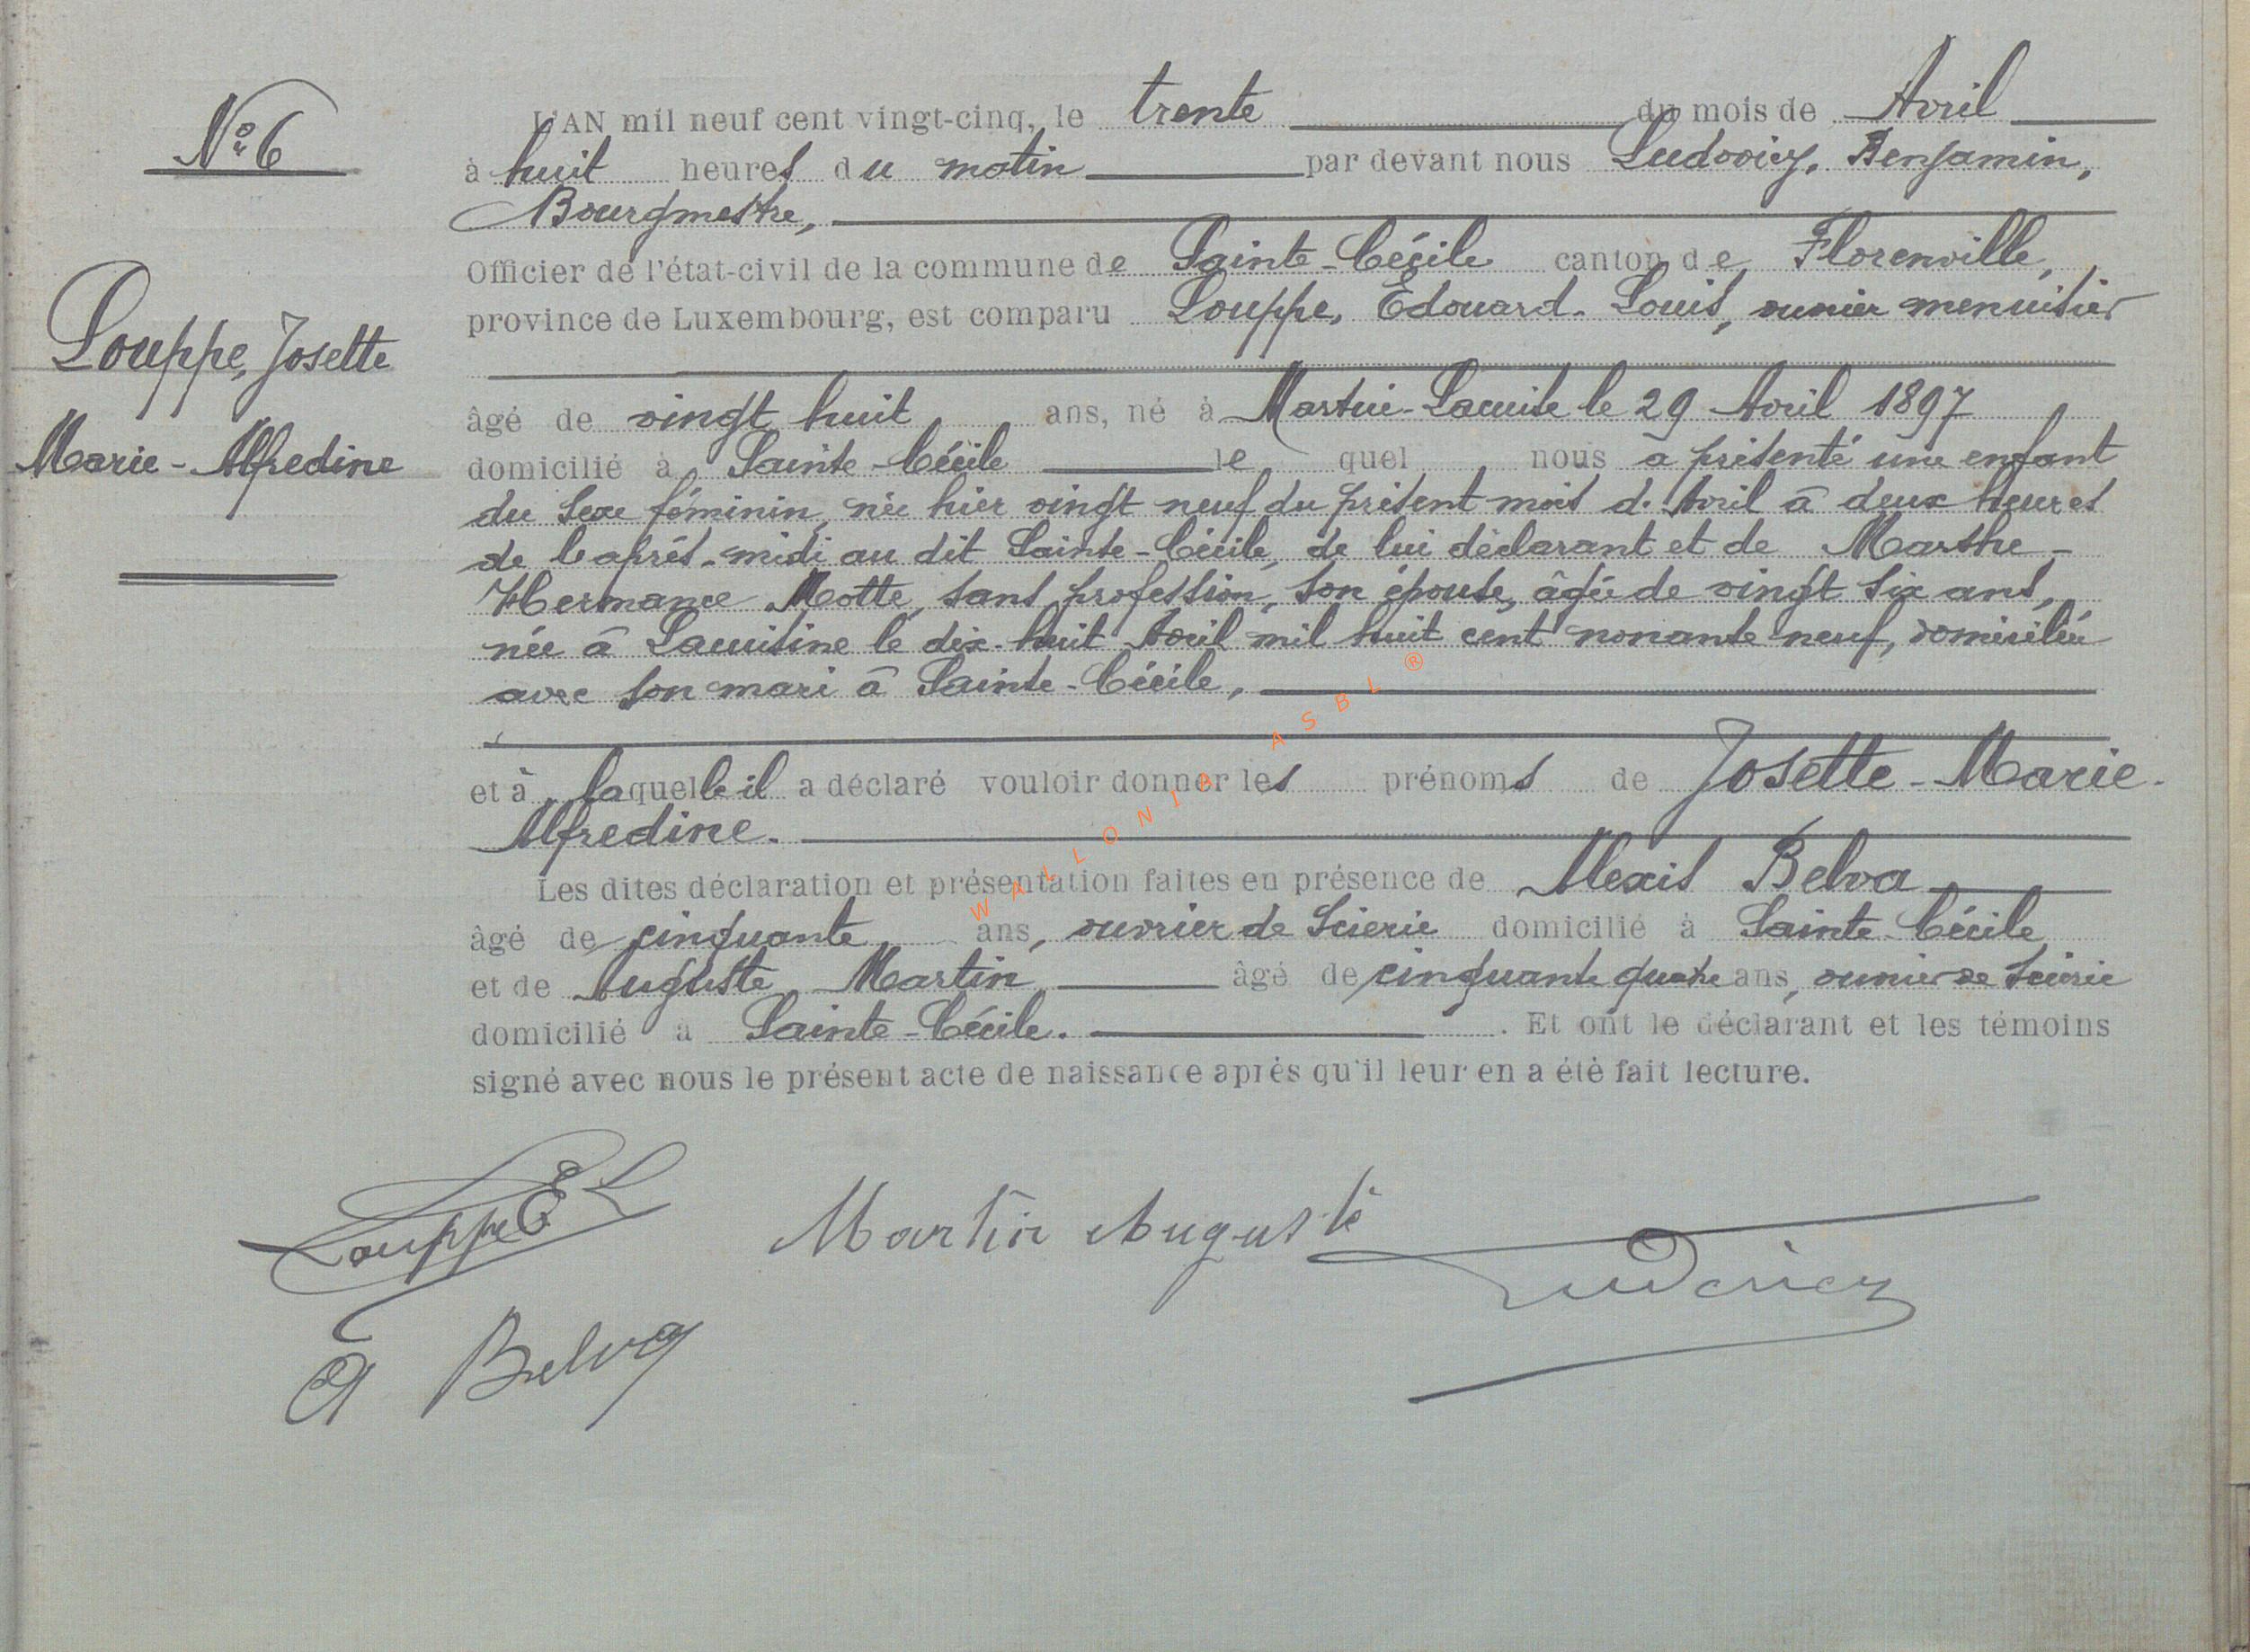 Nº 6
L'AN mil neuf cent vingt-cinq, le trente du mois de Avril
à huit heures du matin par devant nous Ludovicy, Benjamin,
Bourgmestre,
Officier de l'état-civil de la commune de Sainte-Cécile canton de Florenville,
province de Luxembourg, est comparu Louppe, Edouard-Louis, ouvrier menuisier
Louppe, Josette
Marie-Alfredine
âgé de vingt huit ans, né à le 29 Avril 1897
domicilié à Sainte-Cécile le quel nous a présenté une enfant
du sexe féminin, née hier vingt neuf du présent mois d'Avril à deux heures
de l'après-midi au dit Sainte-Cécile, de lui déclarant et de Marthe-
Hermance Motte, sans profession, son épouse, âgée de vingt six ans,
née à Lacuisine le dix-huit Avril mil huit cent nonante neuf, domiciliée
avec son mari à Sainte-Cécile,
et à laquelle il a déclaré vouloir donner les prénoms de Josette-Marie-
Alfredine.
Les dites déclaration et présentation faites en présence de Alexis Belva
âgé de cinquante ans, ouvrier de scierie domicilié à Sainte-Cécile
et de Auguste Martin âgé de cinquante quatre ans, ouvrier de scierie
domicilié à Sainte-Cécile. . Et ont le déclarant et les témoins
signé avec nous le présent acte de naissance après qu'il leur en a été fait lecture.
Louppe E L Martin Auguste Ludovicy
A Belva
WALLONIA ASBL ®